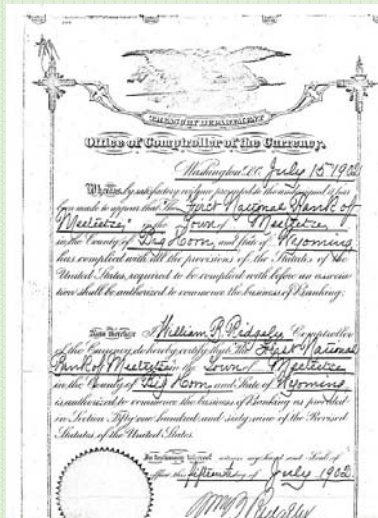 TREASURY DEPARTMENT
Office of Comptroller of the Currency,
Washington, D.C. July 15 1902
Whereas, by satisfactory evidence presented to the undersigned, it has
been made to appear that "The First National Bank of
Meeteetse" in the Town of Meeteetse
in the County of Big Horn, and State of Wyoming
has complied with all the provisions of the Statutes of the
United States, required to be complied with before an associa-
tion shall be authorized to commence the business of Banking;
Now therefore I William B. Ridgely, Comptroller
of the Currency, do hereby certify that "The First National
Bank of Meeteetse" in the Town of Meeteetse
in the County of Big Horn, and State of Wyoming
is authorized to commence the business of Banking as provided
in Section Fifty one hundred and sixty nine of the Revised
Statutes of the United States.
In testimony whereof witness my hand and Seal of
office this fifteenth day of July 1902